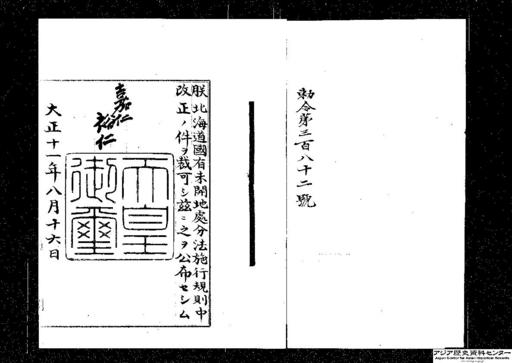 勅令第三百八十二號
朕北海道國有未開地處分法施行規則中
改正ノ件ヲ裁可シ茲ニ之ヲ公布セシム
嘉仁
裕仁
天皇
御璽
大正十一年八月十六日
アジア歴史資料センター
Japan Center for Asian Historical Records